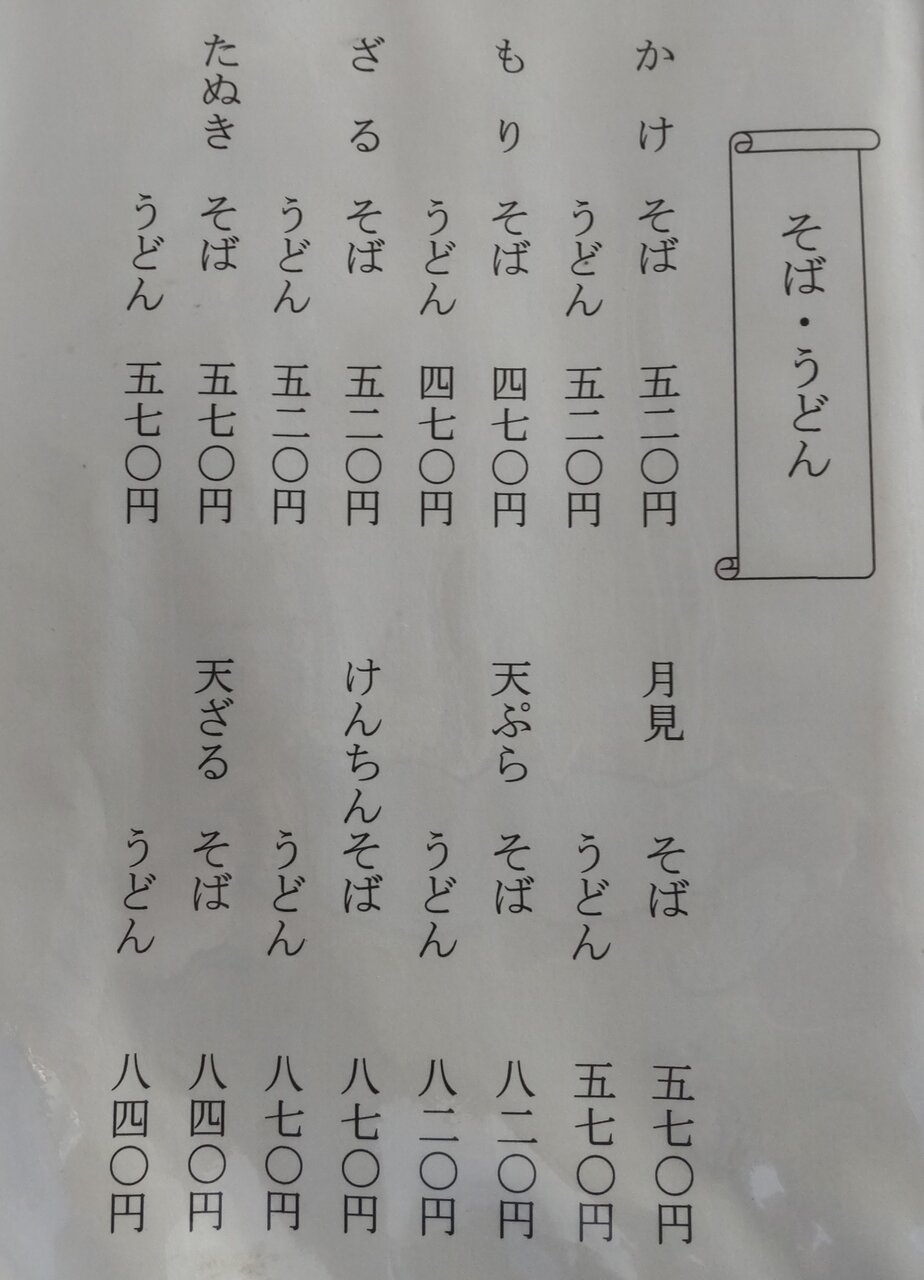 そば・うどん
かけ そば 五二〇円
うどん 五二〇円
もり そば 四七〇円
うどん 四七〇円
ざる そば 五二〇円
うどん 五二〇円
たぬき そば 五七〇円
うどん 五七〇円
月見 そば 五七〇円
うどん 五七〇円
天ぷら そば 八二〇円
うどん 八二〇円
けんちん そば 八七〇円
うどん 八七〇円
天ざる そば 八四〇円
うどん 八四〇円